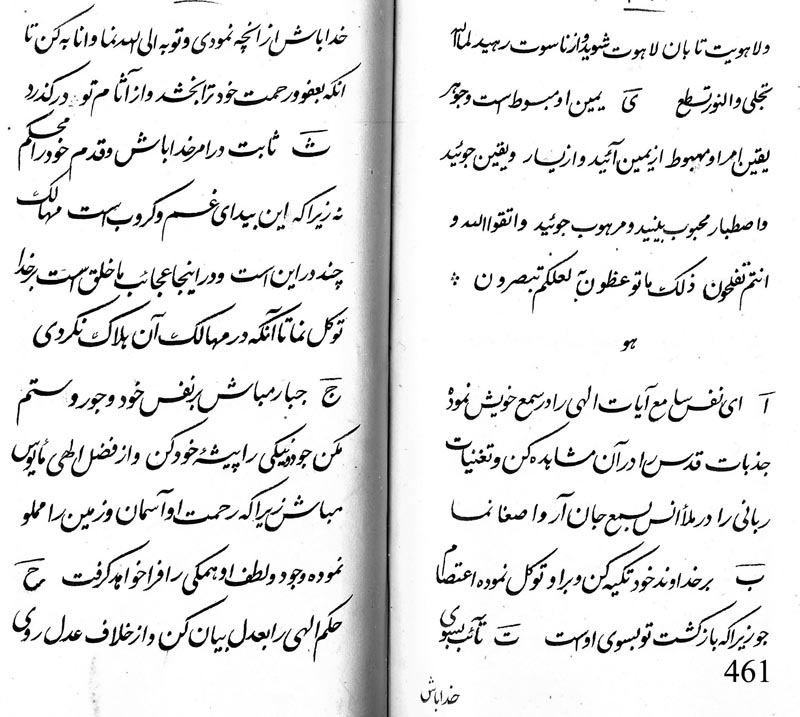 ولاهویت تابان لاهوت شوید و از ناسوت رهید لما الله
تجلی والنور تسطع ی یمین او مبسوط است وجوهر
یقین امر او مهبوط از یمین آئید و از یسار ویقین جوئید
واصطبار محبوب بینید و مرهوب جوئید واتقوا الله و
انتم تفلحون ذلک ما توعظون به لعلکم تبصرون
هو
ا ای نفس سامع آیات الهی را در سمع خویش نموده
جذبات قدس را در آن مشاهده کن و تغنیات
ربانی را در ملأ انس بسمع جان آر واصغا نما
ب بر خداوند خود تکیه کن و بر او توکل نموده اعتصام
جو زیرا که بازگشت تو بسوی اوست ت تائب بسوی
461
خدا باش
خدا باش از آنچه نمودی و توبه الی الله نما و انابه کن تا
آنکه بعفو و رحمت خود ترا بخشد و از آثام تو درگذرد
ث ثابت در امر خدا باش و قدم خود را محکم
نه زیرا که این بیدای غم و کروب است مهالک
چند در این است و در اینجا عجائب ما خلق است بر خدا
توکل نما تا آنکه در مهالک آن هلاک نگردی
ج جبار مباش بر نفس خود و جور و ستم
مکن جود و نیکی را پیشهٔ خود کن و از فضل الهی مأیوس
مباش زیرا که رحمت او آسمان و زمین را مملو
نموده وجود و لطف او همگی را فرا خواهد گرفت ح
حکم الهی را بعدل بیان کن و از خلاف عدل روی